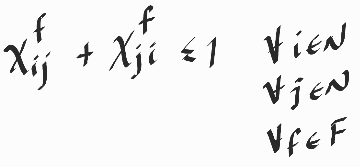 x_{ij}^{f} + x_{ji}^{f} ≤ 1 ∀ i ∈ N
∀ j ∈ N
∀ f ∈ F